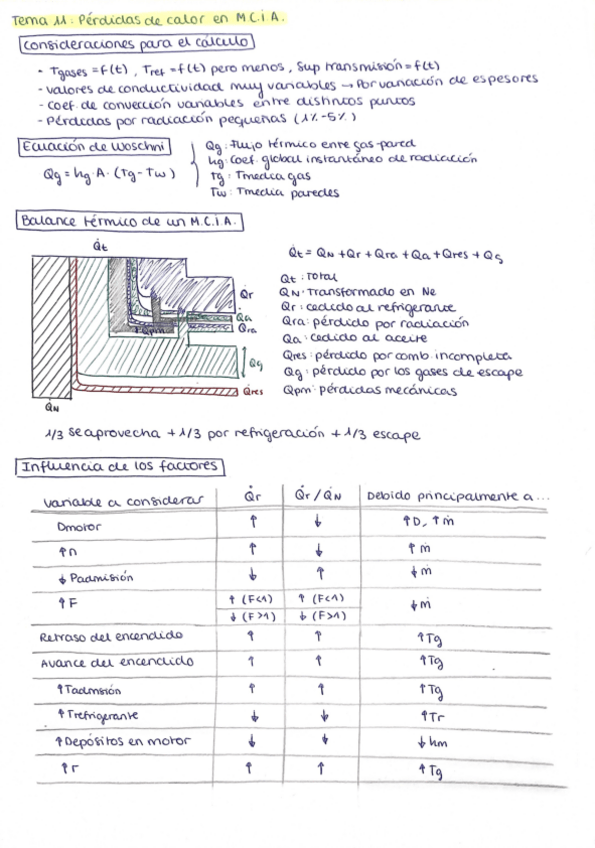 Tema 11: Pérdidas de calor en M.C.i.A.
Consideraciones para el cálculo
- Tgases = f(t), Tref = f(t) pero menos, Sup transmisión = f(t)
- valores de conductividad muy variables → Por variación de espesores
- Coef. de convección variables entre distintos puntos
- Pérdidas por radiación pequeñas (1%-5%)
Ecuación de Woschni
Qg = hg·A·(Tg-Tw)
Qg: Flujo térmico entre gas-pared
hg: Coef. global instantáneo de radiación
Tg: Tmedia gas
Tw: Tmedia paredes
Balance térmico de un M.C.i.A.
Q̇t
Q̇r
Q̇a
Q̇ra
Qpm
Q̇g
Q̇res
Q̇N
Q̇t = QN + Qr + Qra + Qa + Qres + Qg
Qt: Total
QN: Transformado en Ne
Qr: cedido al refrigerante
Qra: pérdido por radiación
Qa: cedido al aceite
Qres: pérdido por comb. incompleta
Qg: pérdido por los gases de escape
Qpm: pérdidas mecánicas
1/3 se aprovecha + 1/3 por refrigeración + 1/3 escape
Influencia de los factores
Variable a considerar Q̇r Q̇r/Q̇N Debido principalmente a...
Dmotor ↑ ↓ ↑D, ↑ṁ
↑n ↑ ↓ ↑ṁ
↓ Padmisión ↓ ↑ ↓ṁ
↑F ↑ (F<1) ↑ (F<1) ↓ṁ
↓ (F>1) ↓ (F>1)
Retraso del encendido ↑ ↑ ↑Tg
Avance del encendido ↑ ↑ ↑Tg
↑Tadmisión ↑ ↑ ↑Tg
↑Trefrigerante ↓ ↓ ↑Tr
↑Depósitos en motor ↓ ↓ ↓hm
↑r ↑ ↑ ↑Tg